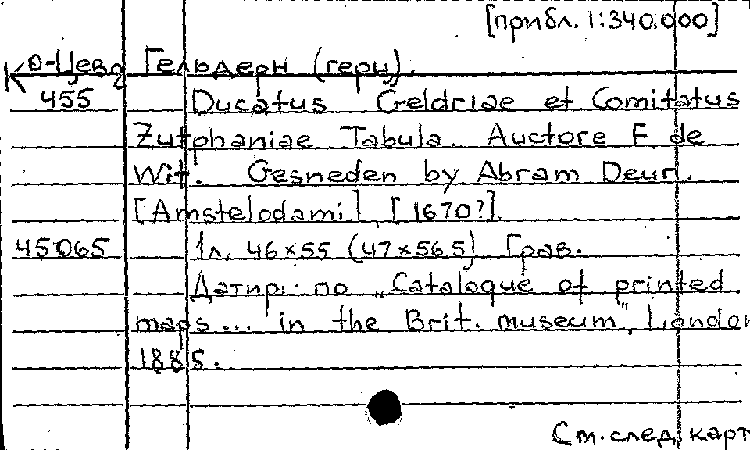 [прибл. 1:340.000]
К о-Цевд Гельдерн (герц).
455 Ducatus Geldriae et Comitatus
Zutphaniae Tabula. Auctore F. de
Wit. Gesneden by Abram Deur.
[Amstelodami], [1670?].
45065 1л. 46×55 (47×56,5) Грав.
Датир. по „Catalogue of printed
maps... in the Brit. museum", London
1885.
См. след. карт